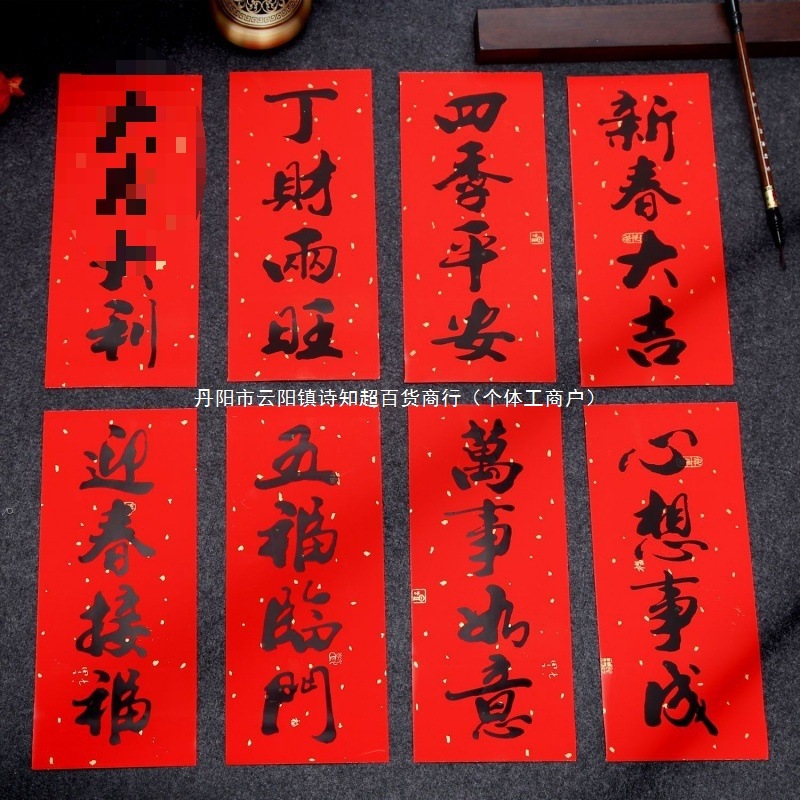 大利
丁財兩旺
四季平安
新春大吉
丹阳市云阳镇诗知超百货商行（个体工商户）
迎春接福
五福臨門
萬事如意
心想事成